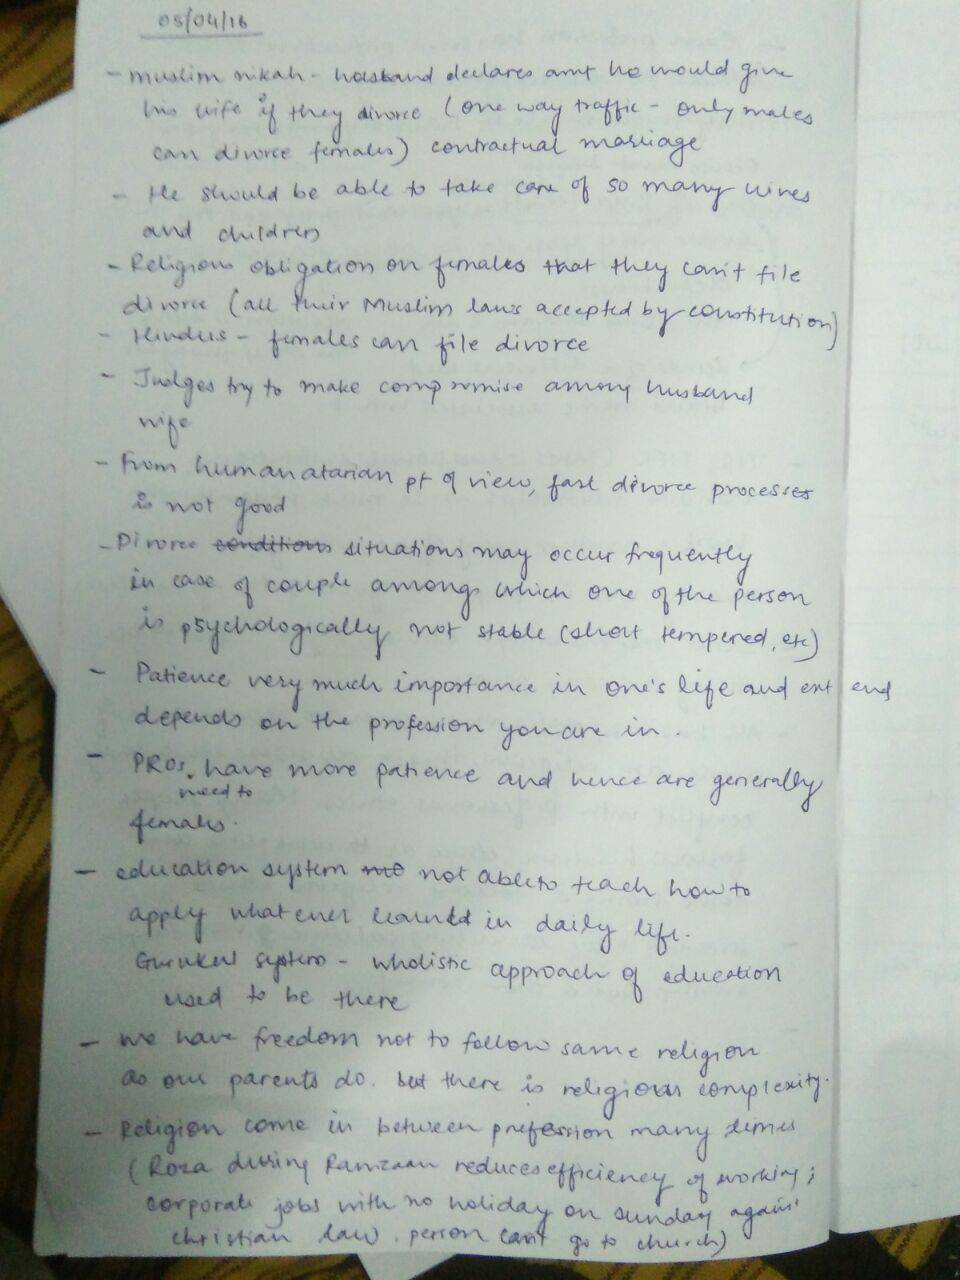 05/04/16
- Muslim nikah - husband declares amt he would give
his wife if they divorce (one way traffic - only males
can divorce females) contractual marriage
- He should be able to take care of so many wives
and children
- Religious obligation on females that they can't file
divorce (all their Muslim laws accepted by constitution)
- Hindus - females can file divorce
- Judges try to make compromise among husband
wife
- From humanatarian pt of view, fast divorce processes
is not good
- Divorce conditions situations may occur frequently
in case of couple among which one of the person
is psychologically not stable (short tempered, etc)
- Patience very much importance in one's life and ext end
depends on the profession you are in.
- PROs have more patience and hence are generally
need to
females.
- education system not able to teach how to
apply what ever learned in daily life.
Gurukul system - wholistic approach of education
used to be there
- we have freedom not to follow same religion
as our parents do. but there is religious complexity.
- Religion come in between profession many times
(Roza during Ramzaan reduces efficiency of working;
corporate jobs with no holiday on sunday again'
christian law. person can't go to church)